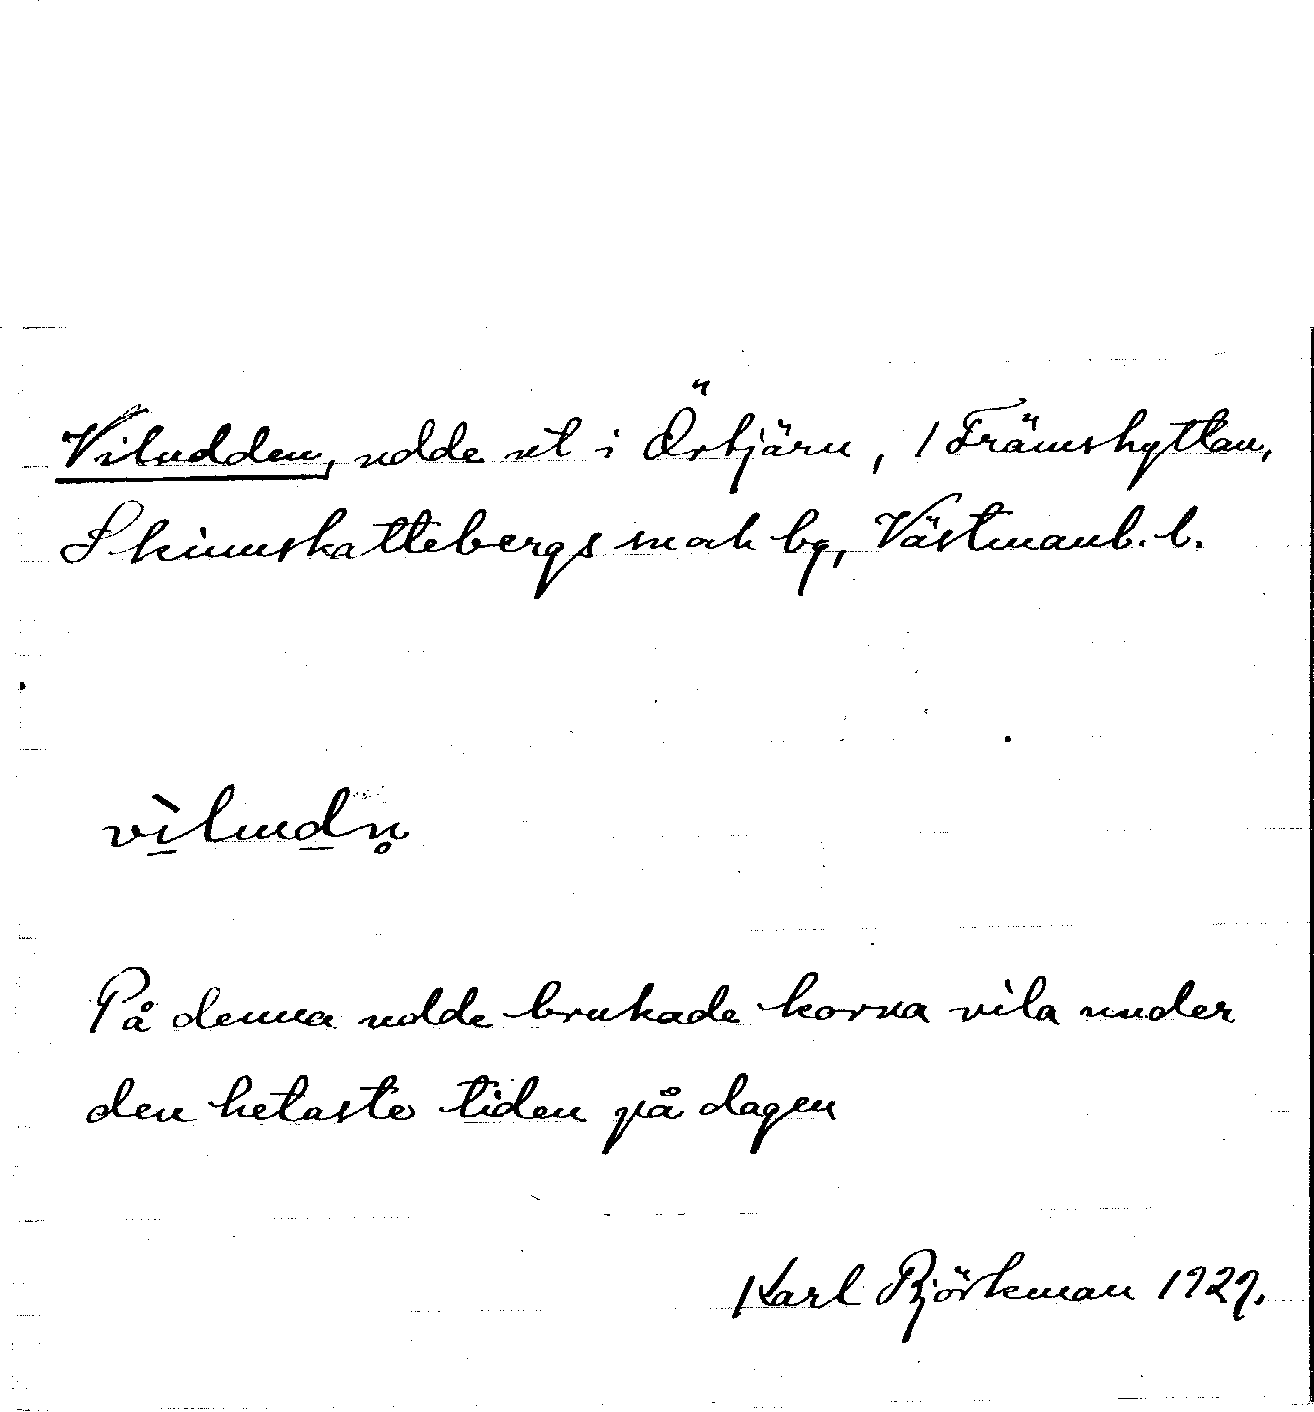 Viludden, udde ut i Örtjärn, 1 Främshyttan,
Skinnskattebergs sn och bg, Västmanl. l.
vìludn̥
På denna udde brukade korna vila under
den hetaste tiden på dagen
Karl Björkman 1929.